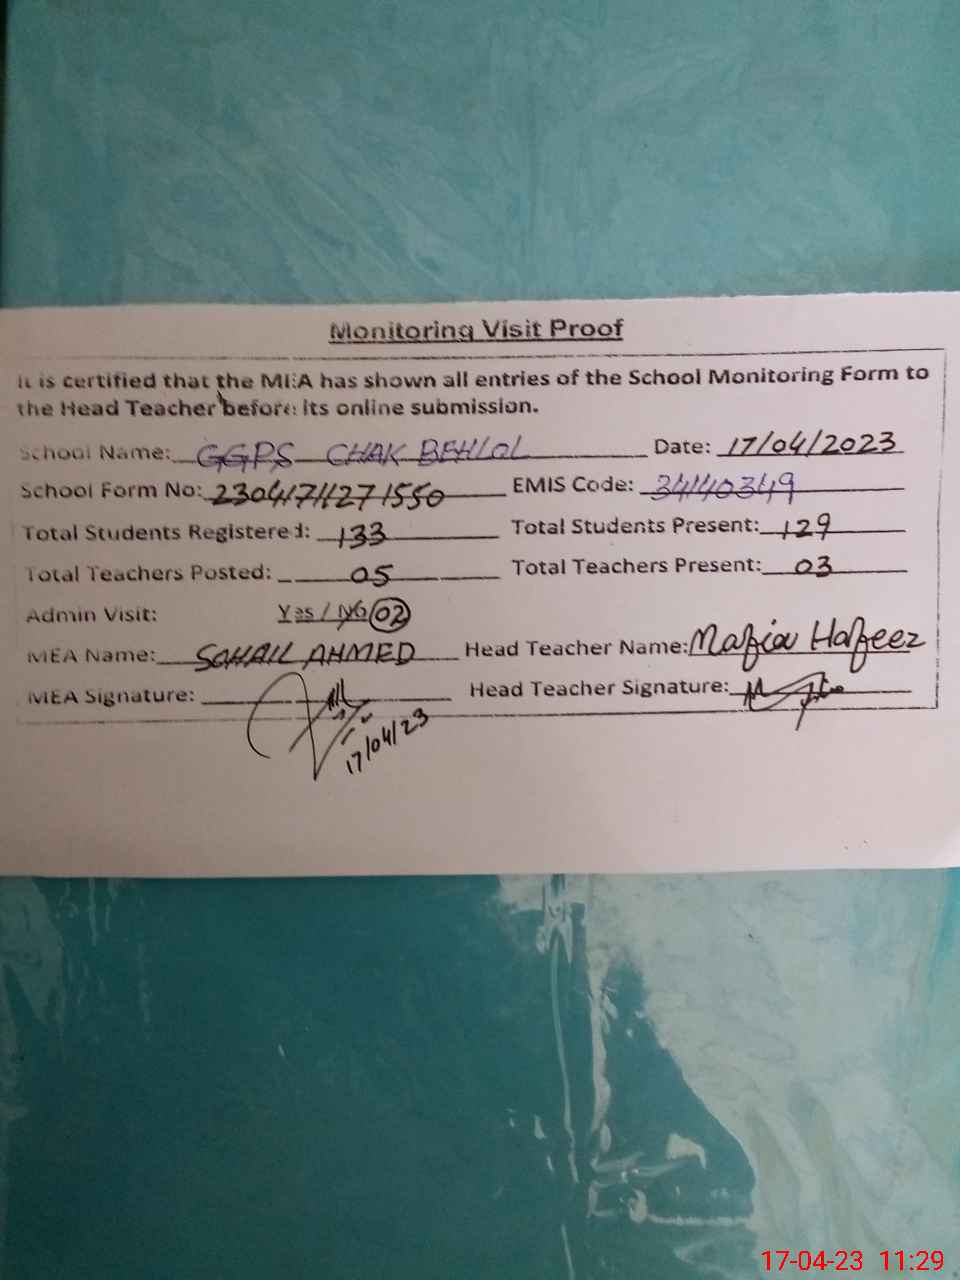 Monitoring Visit Proof
It is certified that the MEA has shown all entries of the School Monitoring Form to
the Head Teacher before its online submission.
School Name: GGPS CHAK BEHLOL Date: 17/04/2023
School Form No: 23041711271550 EMIS Code: 34140349
Total Students Registered: 133 Total Students Present: 129
Total Teachers Posted: 05 Total Teachers Present: 03
Admin Visit: Yes / No 02
MEA Name: SOHAIL AHMED Head Teacher Name: Mafia Hafeez
MEA Signature: Head Teacher Signature:
17/04/23
17-04-23 11:29